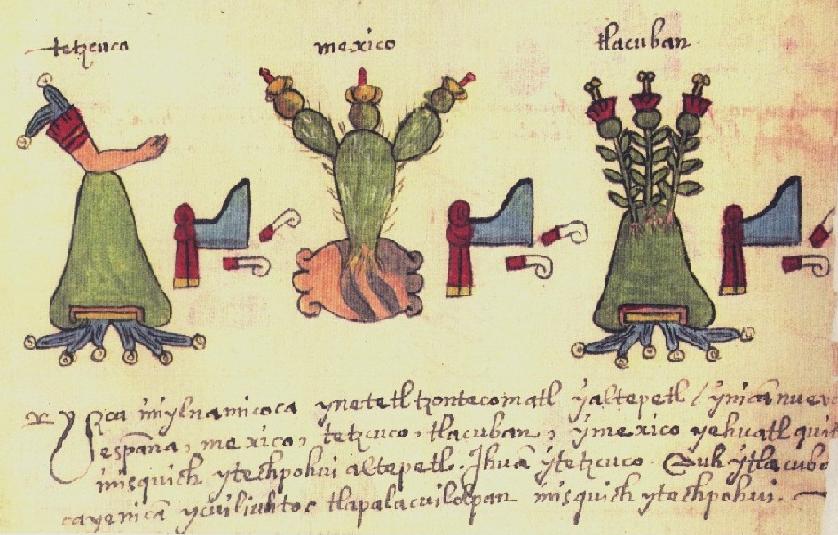 tetzcuca
mexico
tlacuban
ysca ynetetl tzontecomatl yaltepetl / ynicã nueva
españa, mexico, tetzcuco, tlacuban, ymexico yehuatl
ixquich ytechpohui altepetl. Jhuã ytetzcuco.
cayenicã ycuiliuhtoc tlapalacuilolpan ixquich ytechpohui.